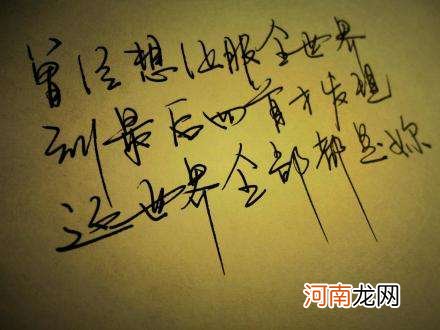 曾经想征服全世界
到最后回首才发现
这世界全部都是你
河南龙网